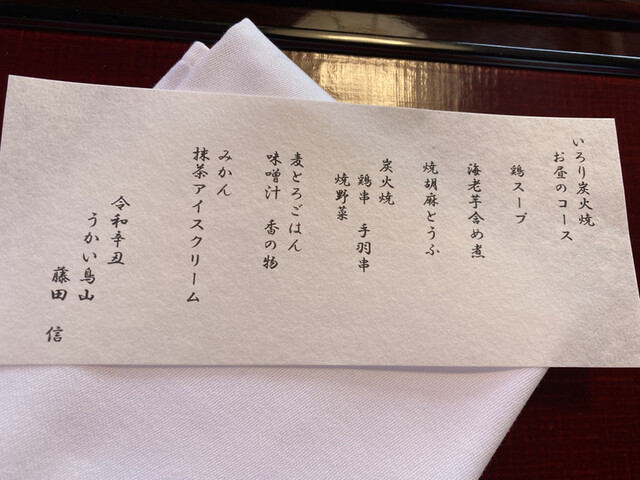 いろり炭火焼
お昼のコース
鶏スープ
海老芋含め煮
焼胡麻とうふ
炭火焼
鶏串 手羽串
焼野菜
麦とろごはん
味噌汁 香の物
みかん
抹茶アイスクリーム
令和辛丑
うかい鳥山
藤田 信